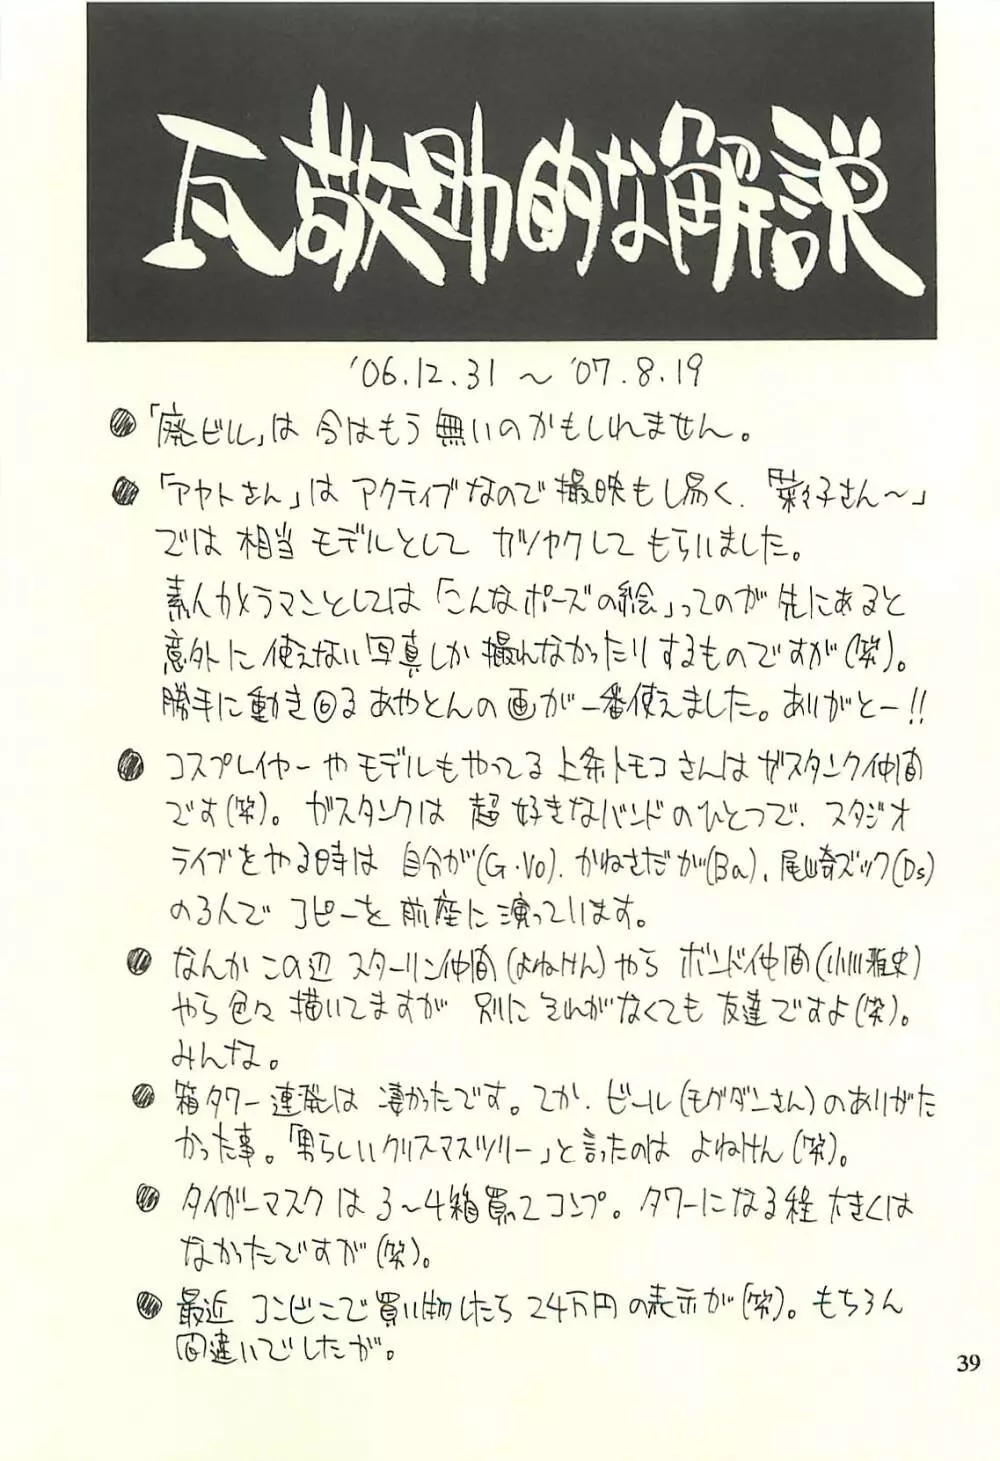 瓦敬助的な解説
'06.12.31 〜 '07.8.19
●「廃ビル」は 今はもう 無いのかもしれません。
●「アヤトさん」は アクティブなので 撮映もし易く、「菜々子さん〜」
では 相当 モデルとして カツヤクして もらいました。
素人カメラマンとしては「こんなポーズの絵」ってのが 先にあると
意外に 使えない 写真しか 撮れなかったりするものですが(笑)。
勝手に動き回る あやとんの 画が 一番使えました。ありがとー!!
● コスプレイヤーや モデルもやってる 上条トモコさんは ガスタンク仲間
です(笑)。 ガスタンクは 超 好きなバンドのひとつで、スタジオ
ライブをやる時は 自分が(G・Vo)、かねさだが(Ba)、尾崎ズック(Ds)
のるんで コピーを 前座に 演っています。
● なんか この辺 スターリン仲間(よねけん)やら ボンド仲間(小川雅史)
やら色々 描いてますが 別に それがなくても 友達ですよ(笑)。
みんな。
● 箱タワー連発は 凄かったです。てか、ビール(モグダンさん)のありがた
かった事。「男らしいクリスマスツリー」と 言ったのは よねけん(笑)。
● タイガーマスクは 3〜4箱買って コンプ。 タワーになる程 大きくは
なかったですが(笑)。
● 最近 コンビニで 買い物したら 24万円の表示が(笑)。もちろん
間違いでしたが。
39